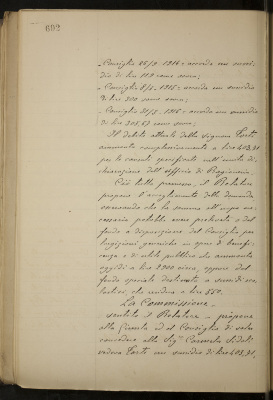 602
- Consiglio 26/9 - 1916 = accorda un sussi-
dio di lire 102 come sopra;
- Consiglio 8/5 - 1915 = un sussidio
di lire 200 come sopra;
- Consiglio 31/5 - 1916 = accorda un sussidio
di lire 305,67 come sopra;
Il debito attuale della Signora Forti
ammonta complessivamente a lire 408,31
per le causali specificate nell'unita di-
chiarazione dell'Ufficio di Ragioneria.
Ciò tutto premesso, il Relatore
propone l'accoglimento della domanda
osservando che la somma all'uopo ne-
cessaria potrebbe venire prelevata o dal
fondo a disposizione del Consiglio per
elargizioni generiche in opere di benefi-
cenza e di utilità pubblica che ammonta
oggidì a lire 2000 circa, oppure dal
fondo speciale destinato a sussidi sco-
lastici, che residua a lire 550.
La Commissione -
sentito il Relatore - propone
alla Giunta ed al Consiglio di voler
concedere alla Sigra Carmela
vedova Forti un sussidio di lire 408,31.